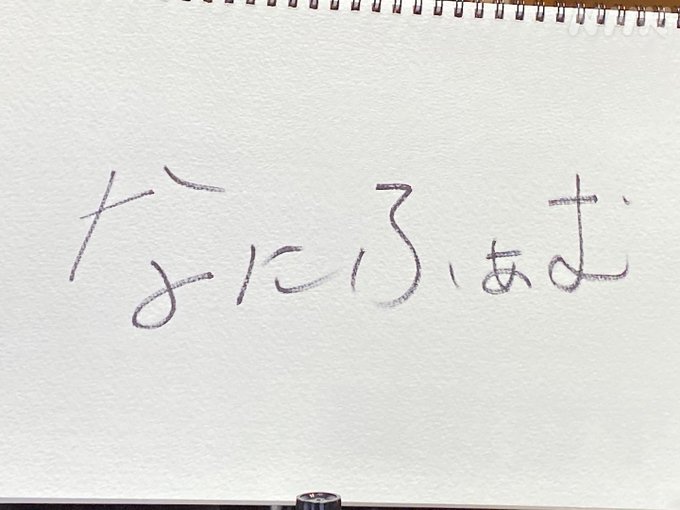 NHK
なにふぁむ